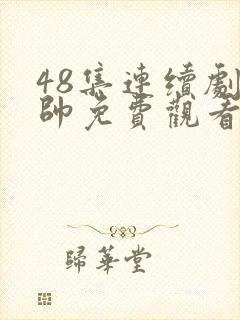 48集連續劇
帥免費觀看
歸華堂